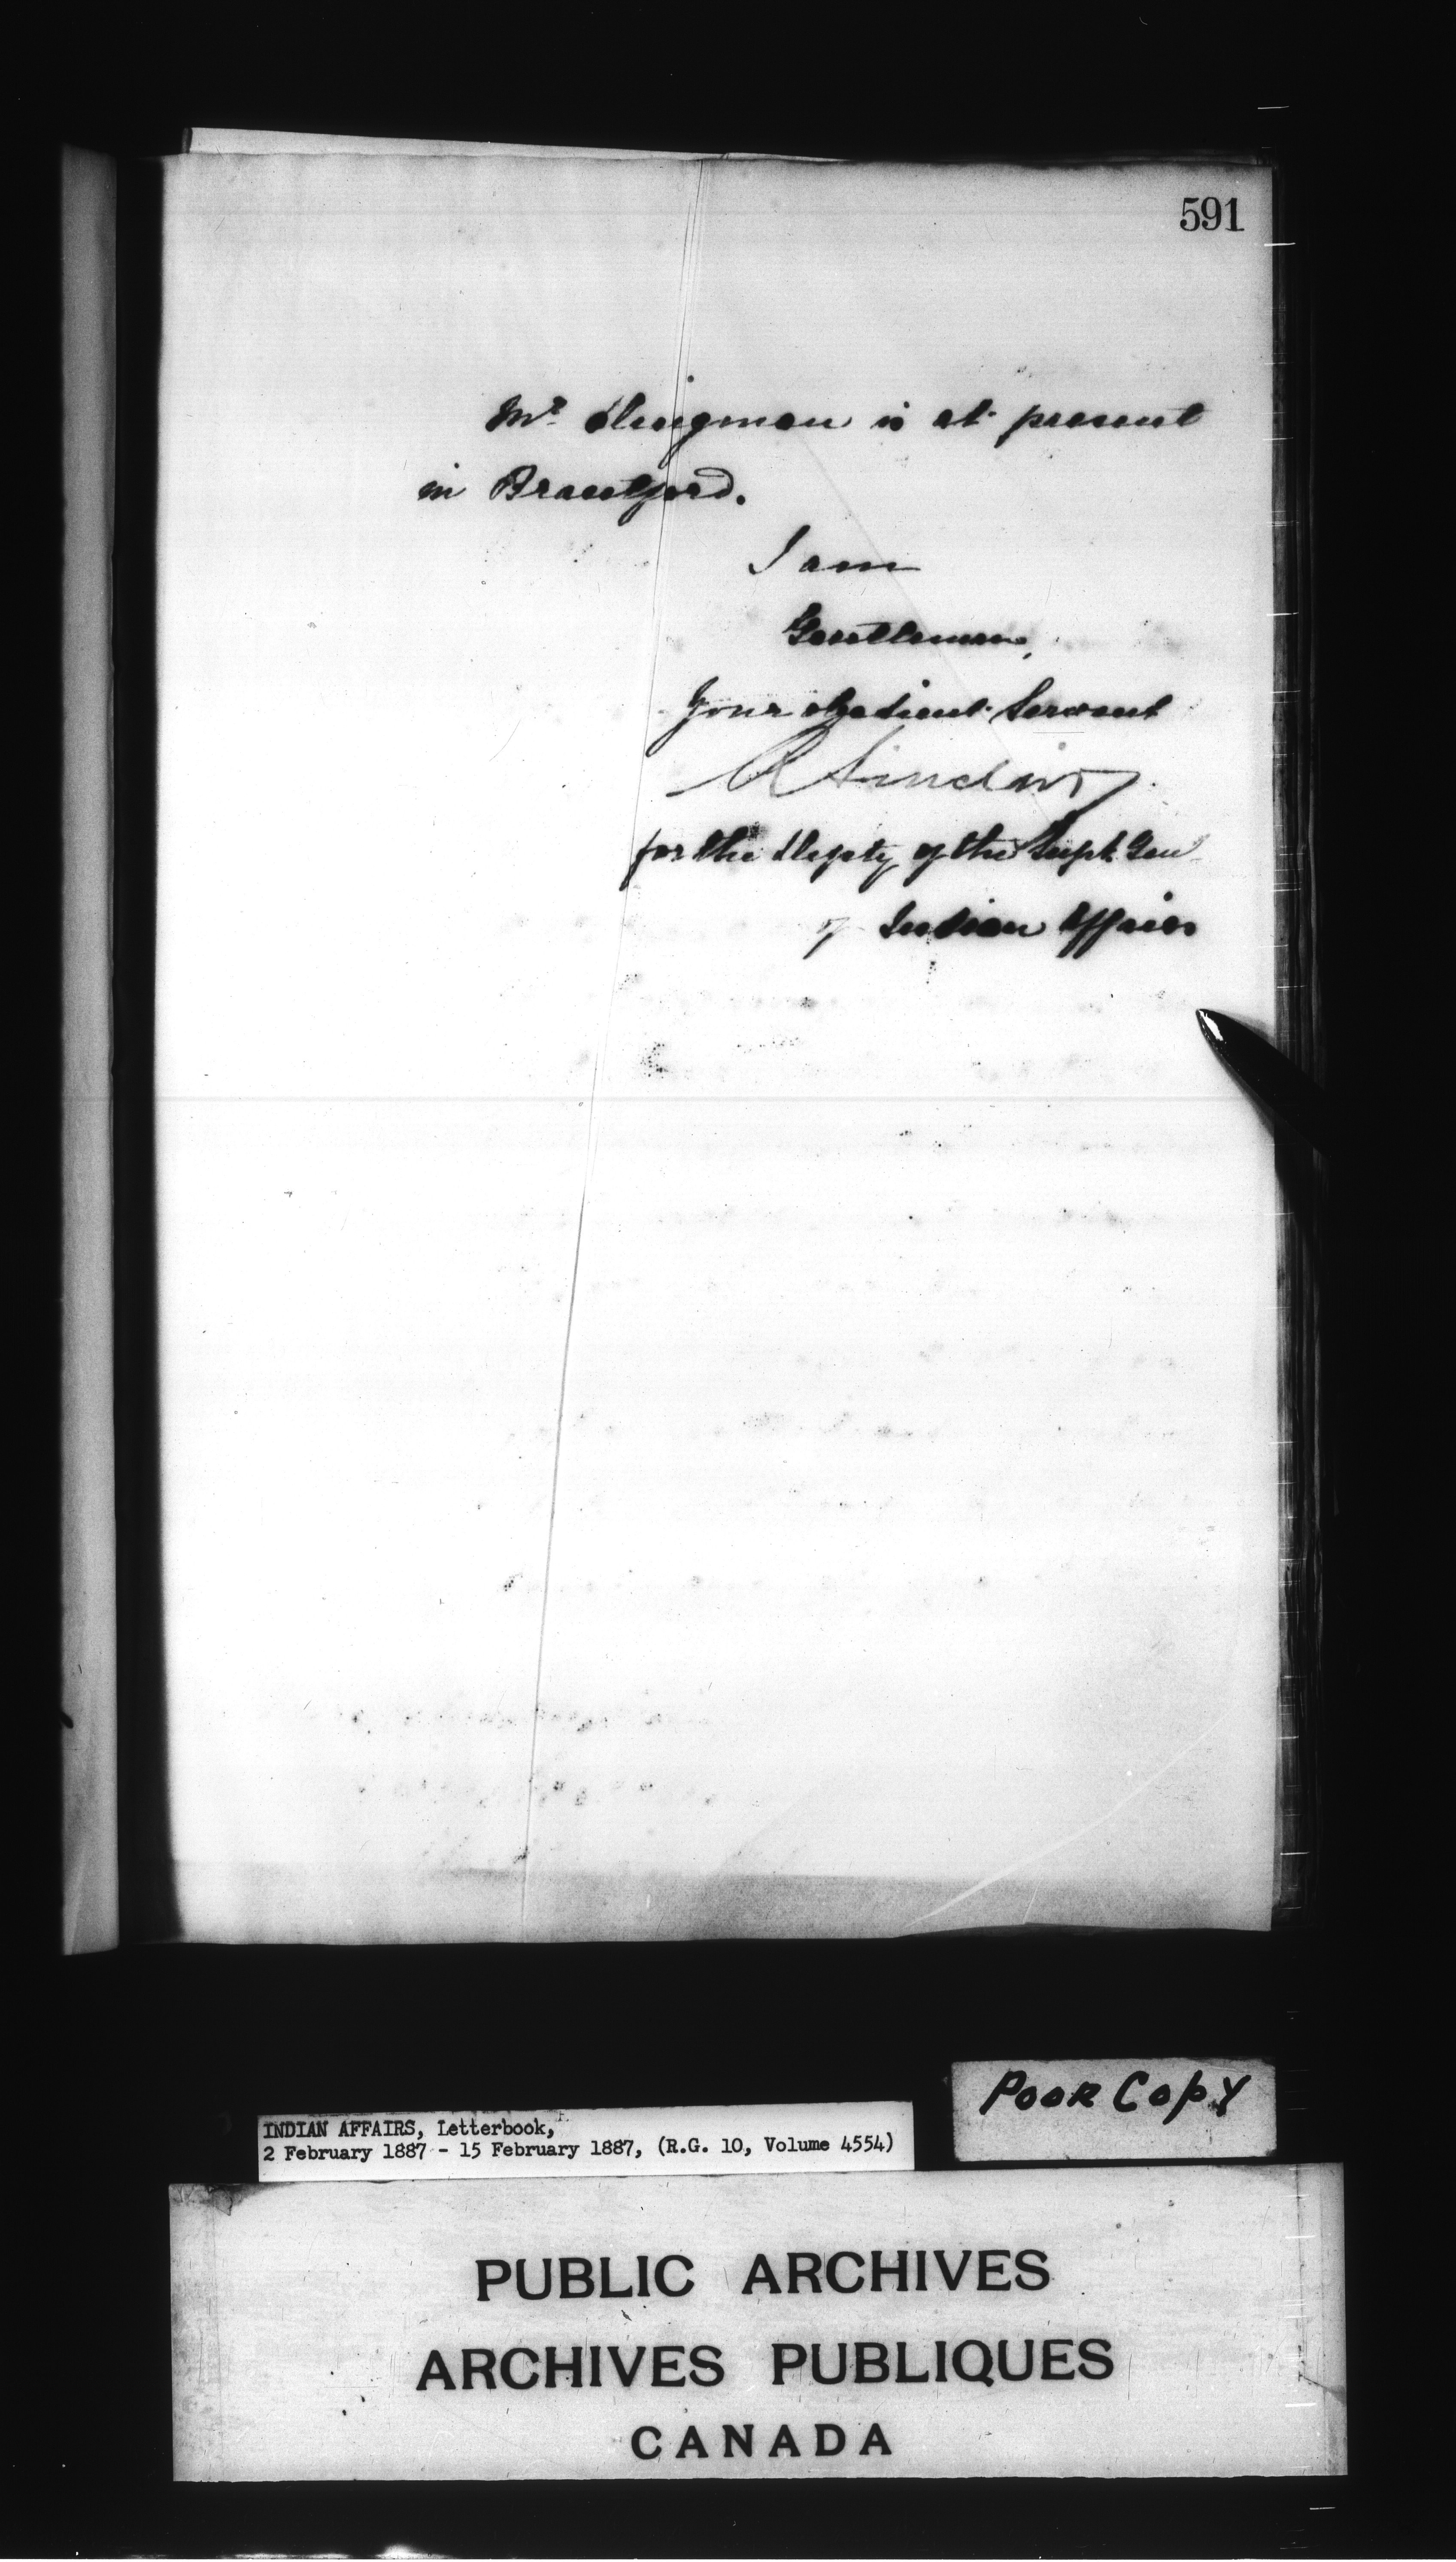 591
Mr. Dingman is at present
in Brantford.
I am
Gentlemen,
Your obedient Servant
R Sinclair
for the Deputy of the Supt. Gen
of Indian Affairs
POOR COPY
INDIAN AFFAIRS, Letterbook,
2 February 1887 - 15 February 1887, (R.G. 10, Volume 4554)
PUBLIC ARCHIVES
ARCHIVES PUBLIQUES
CANADA